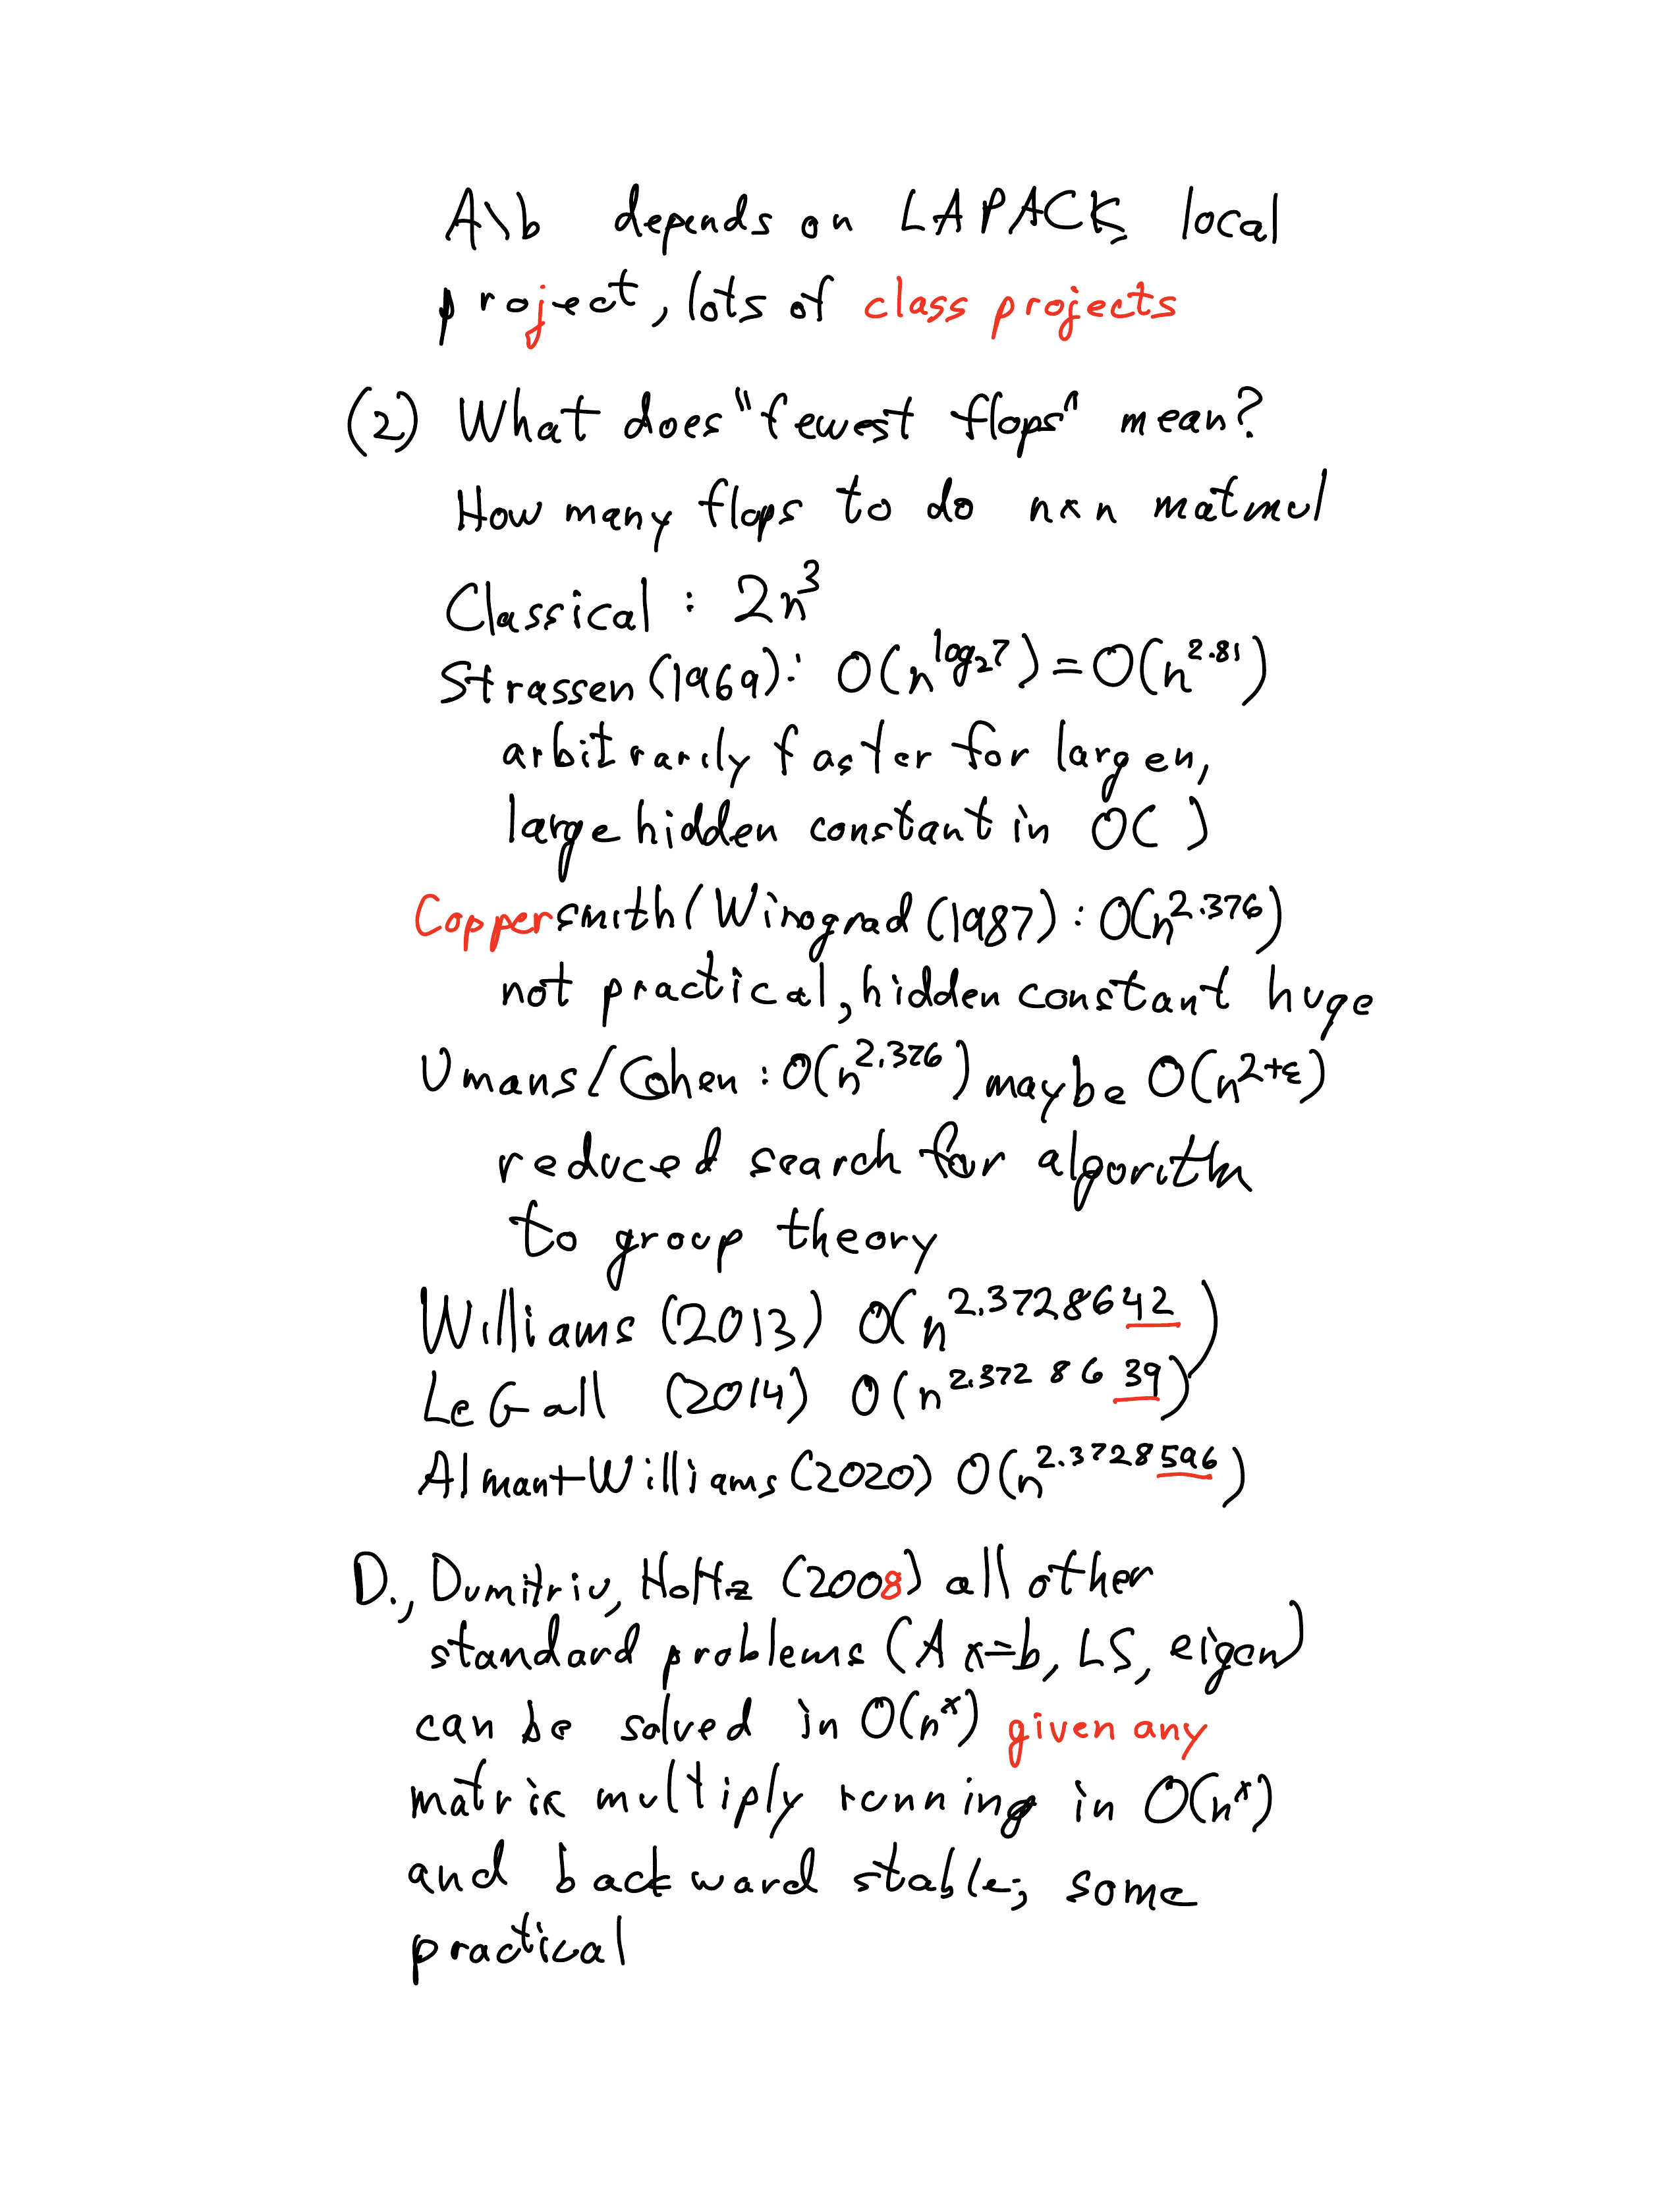 A\b depends on LAPACK, local
project, lots of class projects
(2) What does "fewest flops" mean?
How many flops to do n×n matmul
Classical : 2n^3
Strassen (1969): O(n^{log_2 7}) = O(n^{2.81})
arbitrarily faster for large n,
large hidden constant in O( )
Coppersmith/Winograd (1987) : O(n^{2.376})
not practical, hidden constant huge
Umans/Cohen : O(n^{2.376}) maybe O(n^{2+ε})
reduced search for algorithm
to group theory
Williams (2013) O(n^{2.3728642})
LeGall (2014) O(n^{2.3728639})
Alman+Williams (2020) O(n^{2.3728596})
D., Dumitriu, Holtz (2008) all other
standard problems (Ax=b, LS, eigen)
can be solved in O(n^x) given any
matrix multiply running in O(n^x)
and backward stable; some
practical